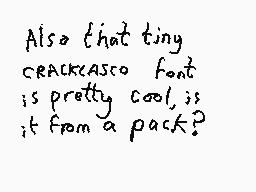 Also that tiny
CRACKCASCO font
is pretty cool, is
it from a pack?